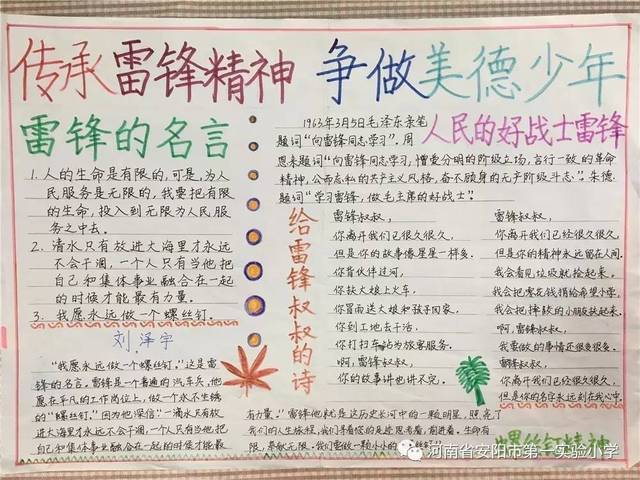 传承雷锋精神 争做美德少年
雷锋的名言
1. 人的生命是有限的,可是,为人
民服务是无限的,我要把有限
的生命,投入到无限为人民服
务之中去。
2. 清水只有放进大海里才永远
不会干涸,一个人只有当他把
自己和集体事业融合在一起
的时候才能最有力量。
3. 我愿永远做一个螺丝钉。
刘泽宇
“我愿永远做一个螺丝钉。”这是雷
锋的名言。雷锋是一个普通的汽车兵,他
愿在平凡的工作岗位上,做一个永不生锈
的“螺丝钉”。因为他深信:“一滴水只有放
进大海里才永远不会干涸,一个人只有当他把
自己和集体事业融合在一起的时候才能最
有力量。”雷锋他就是这历史长河中的一颗明星,照亮了
我们的人生旅程,
限,奉献无限,我们要做一颗小小的“螺丝钉”。
人民的好战士雷锋
1963年3月5日毛泽东亲笔
题词“向雷锋同志学习”。周
恩来题词“向雷锋同志学习,憎爱分明的阶级立场,言行一致的革命
精神,公而忘私的共产主义风格,奋不顾身的无产阶级斗志。”朱德
题词“学习雷锋,做毛主席的好战士”。
给雷锋叔叔的诗
雷锋叔叔,
你离开我们已经很久很久,
但是你的故事像星星一样多。
你背伙伴过河,
你扶大娘上火车,
你冒雨送大嫂和孩子回家,
你到工地去干活,
你打扫车站为旅客服务。
啊,雷锋叔叔,
你的故事讲也讲不完。
雷锋叔叔,
你离开我们已经很久很久,
但是你的精神永远留在人间。
我会看见垃圾就捡起来,
我会把零花钱捐给希望小学,
我会把摔跤的小朋友扶起来。
啊,雷锋叔叔,
我要做的事情还很多很多。
雷锋叔叔,
你离开我们已经很久很久,
但是你的名字永远刻在我心中。
螺丝钉精神
河南省安阳市第一实验小学